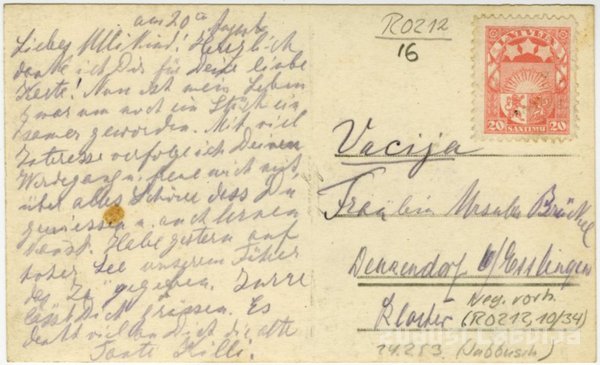 am 20ten August
Liebes Ullikind! Herzlich
danke ich Dir für Deine liebe
Karte! Nun ist mein Leben
zwar um noch ein Stück ein
samer geworden. Mit viel
Interesse verfolge ich Deinen
Werdegang u. freue mich mit
über alles Schöne dass Du
geniessen u. auch lernen
kannst. Habe gestern auf
hoher See unserem Führer
das "Ja" gegeben.
lässt Dich grüssen. Es
denkt viel an Dich die alte
Tante Lilli.
R0212
16
LATVIJA
20 SANTIMU 20
Vacija
Fräulein Ursula Brückel
Denkendorf b/Esslingen
Kloster
Neg. vorh.
(R0212, 10/34)
24.253 (Dubbusch)